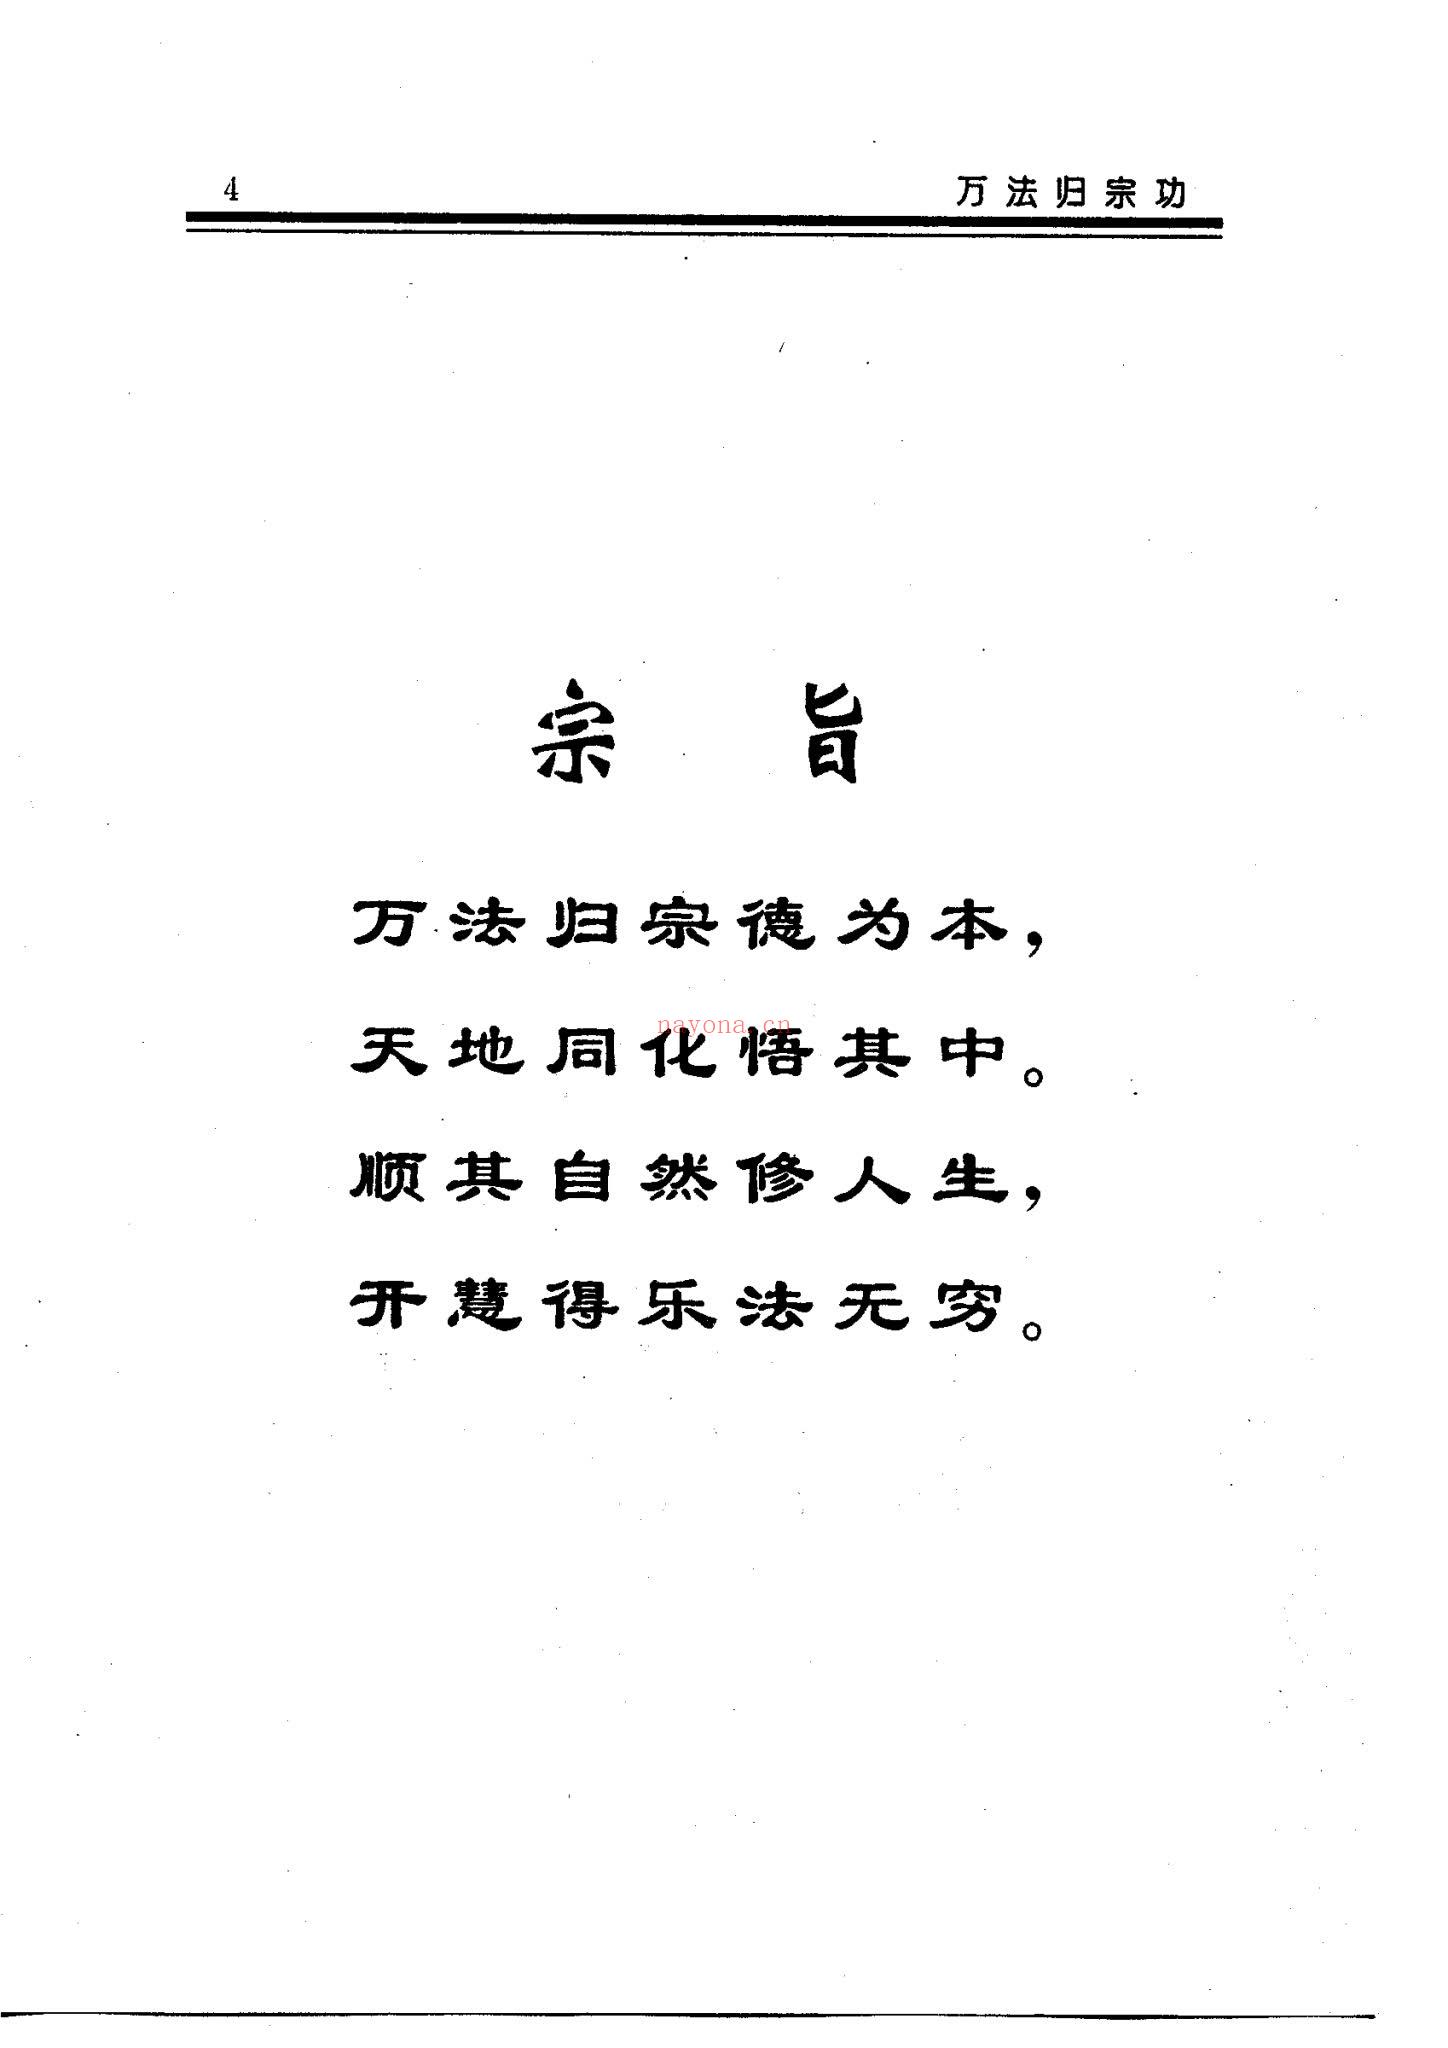 4 万法归宗功
宗 旨
万法归宗德为本，
nayona.cn
天地同化悟其中。
顺其自然修人生，
开慧得乐法无穷。